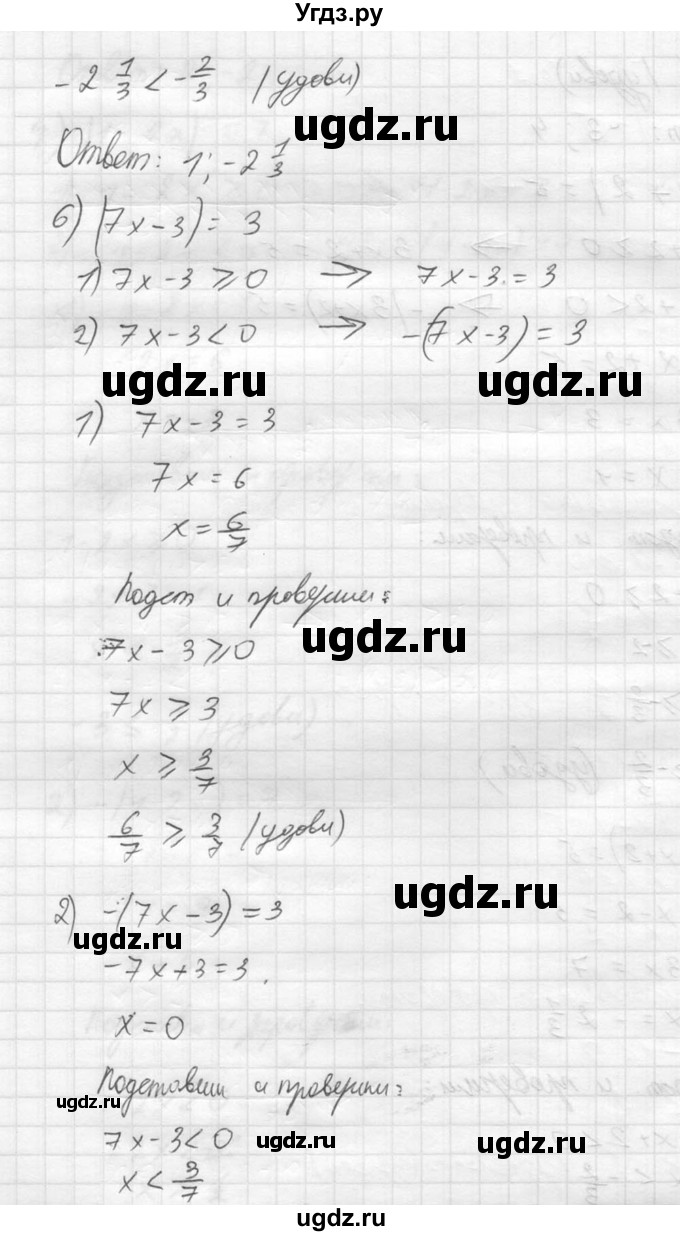 Угдз.ру
-2 1/3 < -2/3 (удовл)
ugdz.ru
Ответ: 1; -2 1/3
6) |7x-3| = 3
1) 7x-3 ⩾ 0 → 7x-3 = 3
2) 7x-3 < 0 → -(7x-3) = 3
ugdz.ru ugdz.ru
1) 7x-3 = 3
7x = 6
x = 6/7
Подст и проверим:
ugdz.ru
7x-3 ⩾ 0
7x ⩾ 3
x ⩾ 3/7
ugdz.ru
6/7 ⩾ 3/7 (удовл)
ugdz.ru
2) -(7x-3) = 3
ugdz.ru
-7x+3 = 3.
x = 0
Подставим и проверим:
ugdz.ru
7x-3 < 0
ugdz.ru ugdz.ru
x < 3/7
ugdz.ru